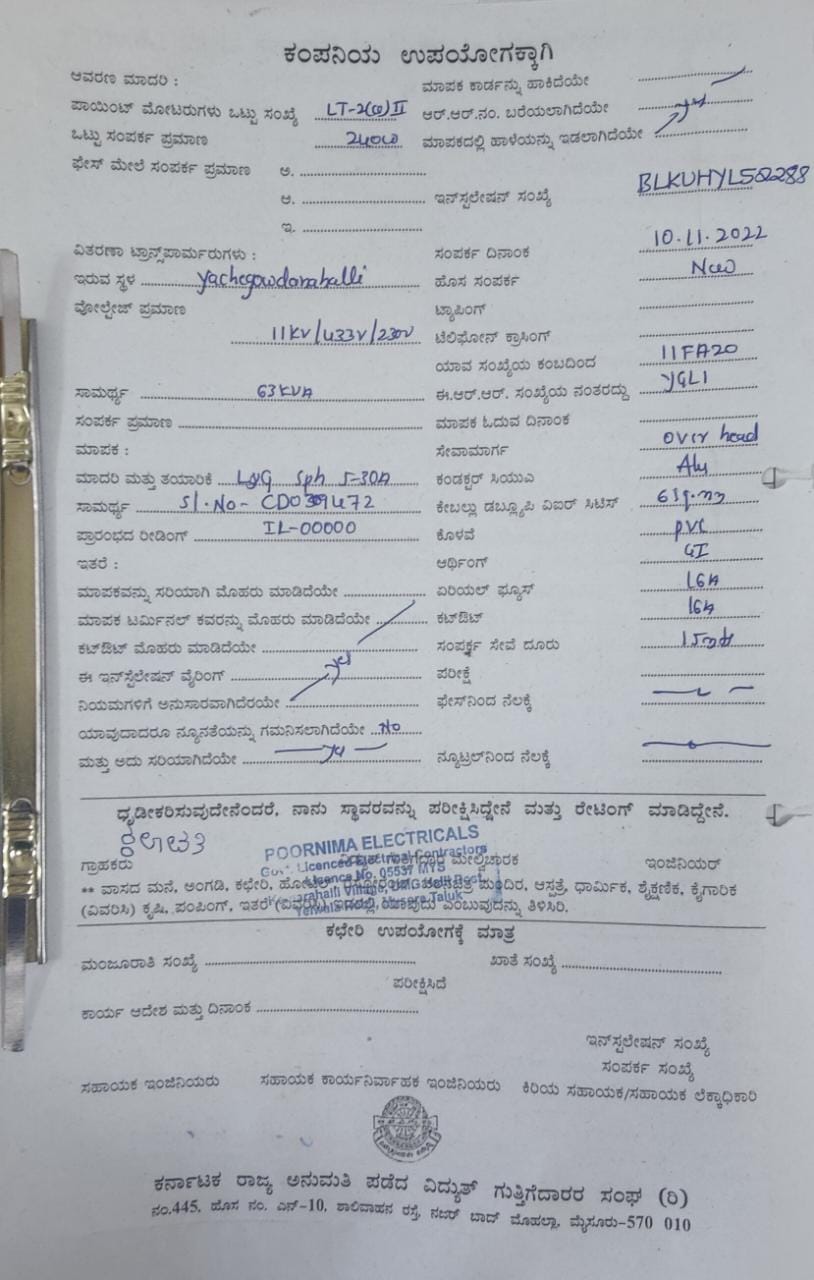 ಕಂಪನಿಯ ಉಪಯೋಗಕ್ಕಾಗಿ
ಆವರಣ ಮಾದರಿ :
ಮಾಪಕ ಕಾರ್ಡನ್ನು ಹಾಕಿದೆಯೇ
ಪಾಯಿಂಟ್ ಮೋಟರುಗಳು ಒಟ್ಟು ಸಂಖ್ಯೆ LT-2(a) II
ಆರ್.ಆರ್.ನಂ. ಬರೆಯಲಾಗಿದೆಯೇ yes
ಒಟ್ಟು ಸಂಪರ್ಕ ಪ್ರಮಾಣ 240W
ಮಾಪಕದಲ್ಲಿ ಹಾಳೆಯನ್ನು ಇಡಲಾಗಿದೆಯೇ
ಫೇಸ್ ಮೇಲೆ ಸಂಪರ್ಕ ಪ್ರಮಾಣ ಅ.
ಆ.
ಇನ್‌ಸ್ಟಲೇಷನ್ ಸಂಖ್ಯೆ BLKUHYL502288
ಇ.
ವಿತರಣಾ ಟ್ರಾನ್ಸ್‌ಫಾರ್ಮರುಗಳು :
ಸಂಪರ್ಕ ದಿನಾಂಕ 10.11.2022
ಇರುವ ಸ್ಥಳ yachegowdanahalli
ಹೊಸ ಸಂಪರ್ಕ New
ವೋಲ್ಟೇಜ್ ಪ್ರಮಾಣ
ಟ್ಯಾಪಿಂಗ್
11KV/433V/230V
ಟೆಲಿಫೋನ್ ಕ್ರಾಸಿಂಗ್
ಯಾವ ಸಂಖ್ಯೆಯ ಕಂಬದಿಂದ 11FA20
ಸಾಮರ್ಥ್ಯ 63KVA
ಈ.ಆರ್.ಆರ್. ಸಂಖ್ಯೆಯ ನಂತರದ್ದು YGL1
ಸಂಪರ್ಕ ಪ್ರಮಾಣ
ಮಾಪಕ ಓದುವ ದಿನಾಂಕ
ಮಾಪಕ :
ಸೇವಾಮಾರ್ಗ over head
ಮಾದರಿ ಮತ್ತು ತಯಾರಿಕೆ L&G Sph 5-30A
ಕಂಡಕ್ಟರ್ ಸಿಯುಎ Alu
ಸಾಮರ್ಥ್ಯ Sl.No-
ಕೇಬಲ್ಲು ಡಬ್ಲ್ಯೂಪಿ ವಿಐರ್ ಸಿಟಿಸ್ 6 sq.mm
ಪ್ರಾರಂಭದ ರೀಡಿಂಗ್ IL-00000
ಕೊಳವೆ PVC
ಇತರೆ :
ಆರ್ಥಿಂಗ್ GI
ಮಾಪಕವನ್ನು ಸರಿಯಾಗಿ ಮೊಹರು ಮಾಡಿದೆಯೇ
ಏರಿಯಲ್ ಫ್ಯೂಸ್ 16A
ಮಾಪಕ ಟರ್ಮಿನಲ್ ಕವರನ್ನು ಮೊಹರು ಮಾಡಿದೆಯೇ
ಕಟ್‌ಔಟ್ 16A
ಕಟ್‌ಔಟ್ ಮೊಹರು ಮಾಡಿದೆಯೇ
ಸಂಪರ್ಕ್ಷ ಸೇವೆ ದೂರು 15mtr
ಈ ಇನ್‌ಸ್ಟೆಲೇಷನ್ ವೈರಿಂಗ್ yes
ಪರೀಕ್ಷೆ
ನಿಯಮಗಳಿಗೆ ಅನುಸಾರವಾಗಿದೆರಯೇ
ಫೇಸ್‌ನಿಂದ ನೆಲಕ್ಕೆ
ಯಾವುದಾದರೂ ನ್ಯೂನತೆಯನ್ನು ಗಮನಿಸಲಾಗಿದೆಯೇ No
ಮತ್ತು ಅದು ಸರಿಯಾಗಿದೆಯೇ
ನ್ಯೂಟ್ರಲ್‌ನಿಂದ ನೆಲಕ್ಕೆ
ಧೃಡೀಕರಿಸುವುದೇನೆಂದರೆ, ನಾನು ಸ್ಥಾವರವನ್ನು ಪರೀಕ್ಷಿಸಿದ್ದೇನೆ ಮತ್ತು ರೇಟಿಂಗ್ ಮಾಡಿದ್ದೇನೆ.
POORNIMA ELECTRICALS
Govt. Licenced Electrical Contractors
Licence No. 05537 MYS
ಗ್ರಾಹಕರು
ಮೇಲ್ವಿಚಾರಕ
ಇಂಜಿನಿಯರ್
** ವಾಸದ ಮನೆ, ಅಂಗಡಿ, ಕಛೇರಿ, ಮಂದಿರ, ಆಸ್ಪತ್ರೆ, ಧಾರ್ಮಿಕ, ಶೈಕ್ಷಣಿಕ, ಕೈಗಾರಿಕ
(ವಿವರಿಸಿ) ಕೃಷಿ, ಪಂಪಿಂಗ್, ಇತರೆ (ವಿವರಿಸಿ) ಇದರಲ್ಲಿ ಯಾವುದು ಎಂಬುವುದನ್ನು ತಿಳಿಸಿರಿ.
ಕಛೇರಿ ಉಪಯೋಗಕ್ಕೆ ಮಾತ್ರ
ಮಂಜೂರಾತಿ ಸಂಖ್ಯೆ
ಖಾತೆ ಸಂಖ್ಯೆ
ಪರೀಕ್ಷಿಸಿದೆ
ಕಾರ್ಯ ಆದೇಶ ಮತ್ತು ದಿನಾಂಕ
ಇನ್‌ಸ್ಟಲೇಷನ್ ಸಂಖ್ಯೆ
ಸಂಪರ್ಕ ಸಂಖ್ಯೆ
ಸಹಾಯಕ ಇಂಜಿನಿಯರು ಸಹಾಯಕ ಕಾರ್ಯನಿರ್ವಾಹಕ ಇಂಜಿನಿಯರು ಕಿರಿಯ ಸಹಾಯಕ/ಸಹಾಯಕ ಲೆಕ್ಕಾಧಿಕಾರಿ
ಕರ್ನಾಟಕ ರಾಜ್ಯ ಅನುಮತಿ ಪಡೆದ ವಿದ್ಯುತ್ ಗುತ್ತಿಗೆದಾರರ ಸಂಘ (ರಿ)
ನಂ.445, ಹೊಸ ನಂ. ಎನ್-10, ಶಾಲಿವಾಹನ ರಸ್ತೆ, ನಜರ್ ಬಾದ್ ಮೊಹಲ್ಲಾ, ಮೈಸೂರು-570 010